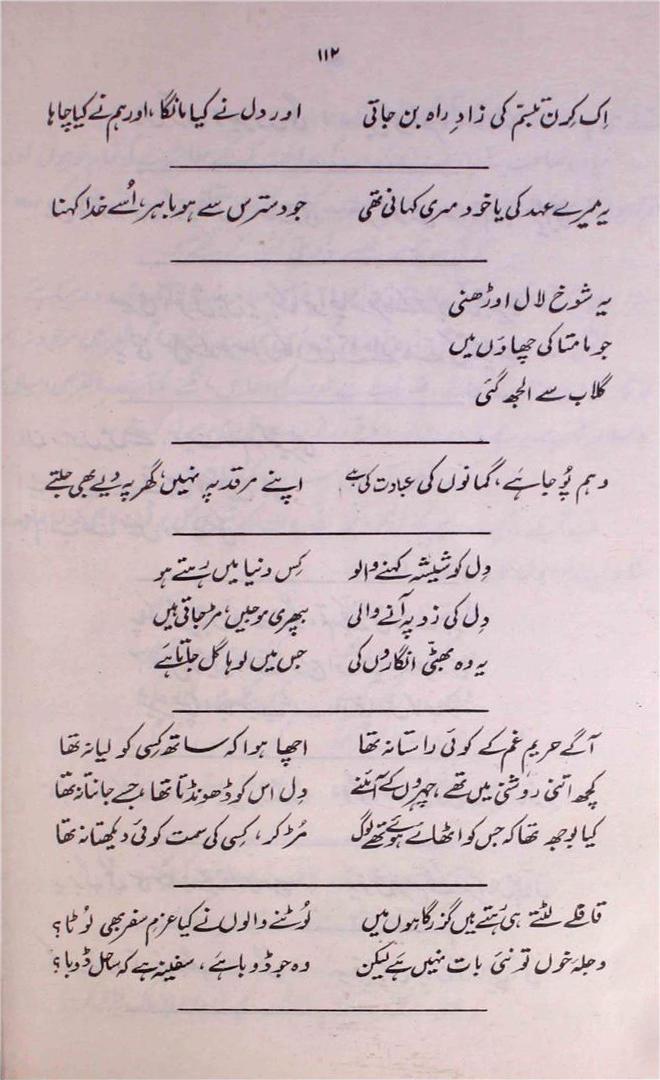 ۱۱۲
اِک کرن تبسّم کی زادِ راہ بن جاتی اور دل نے کیا مانگا، اور ہم نے کیا چاہا
یہ میرے عہد کی یا خود مری کہانی تھی جو دسترس سے ہو باہر، اُسے خدا کہنا
یہ شوخ لال اوڑھنی
جو مامتا کی چھاؤں میں
گلاب سے الجھ گئی
وہم پُوجا ہے، گمانوں کی عبادت کی ہے اپنے مرقد پہ نہیں، گھر پہ دیے بھی جلتے
دِل کو شیشہ کہنے والو کِس دنیا میں رہتے ہو
دِل کی زد پہ آنے والی بپھری موجیں، مڑ جاتی ہیں
یہ وہ بھٹّی انگاروں کی جس میں لوہا گل جاتا ہے
آگے حریمِ غم کے کوئی راستا نہ تھا اچھا ہوا کہ ساتھ کِسی کو لیا نہ تھا
کچھ اتنی روشنی میں تھے، چہروں کے آئنے دِل اس کو ڈھونڈتا تھا، جسے جانتا نہ تھا
کیا بوجھ تھا کہ جس کو اٹھائے ہوئے تھے لوگ مڑ کر، کسی کی سمت کوئی دیکھتا نہ تھا
قافلے لٹتے ہی رہتے ہیں گزرگاہوں میں لوٹنے والوں نے کیا عزمِ سفر بھی لُوٹا؟
دجلۂ خوں تو نئی بات نہیں ہے لیکن وہ جو ڈوبا ہے، سفینہ ہے کہ ساحل ڈوبا؟